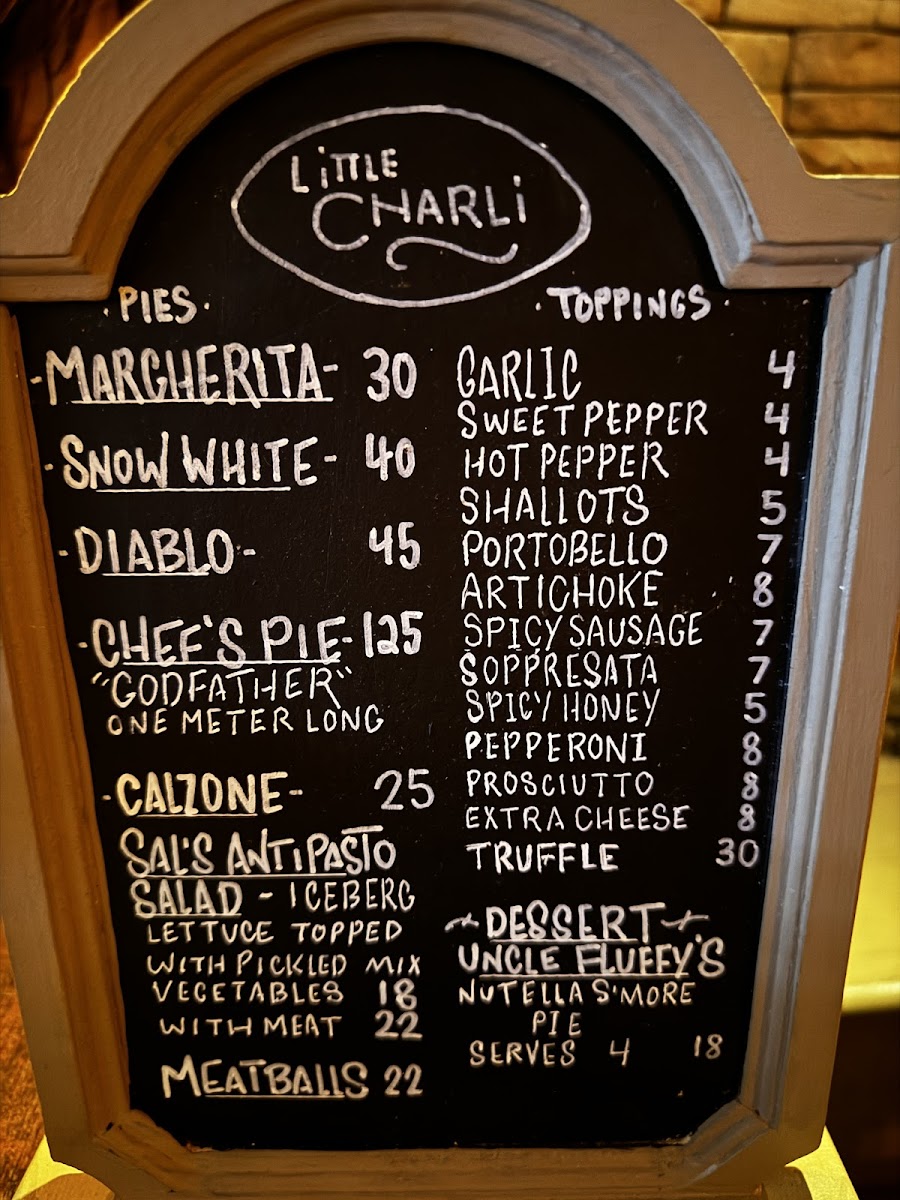 LiTTLE
CHARLi
· PIES ·
- MARGHERITA - 30
- SNOW WHITE - 40
- DIABLO - 45
- CHEF'S PIE - 125
"GODFATHER"
ONE METER LONG
- CALZONE - 25
SAL'S ANTiPASTO
SALAD - ICEBERG
LETTUCE TOPPED
WITH PICKLED MIX
VEGETABLES 18
WITH MEAT 22
MEATBALLS 22
· TOPPINGS ·
GARLIC 4
SWEET PEPPER 4
HOT PEPPER 4
SHALLOTS 5
PORTOBELLO 7
ARTICHOKE 8
SPICY SAUSAGE 7
SOPPRESATA 7
SPICY HONEY 5
PEPPERONI 8
PROSCIUTTO 8
EXTRA CHEESE 8
TRUFFLE 30
~ DESSERT ~
UNCLE FLUFFY'S
NUTELLA S'MORE
PIE
SERVES 4 18